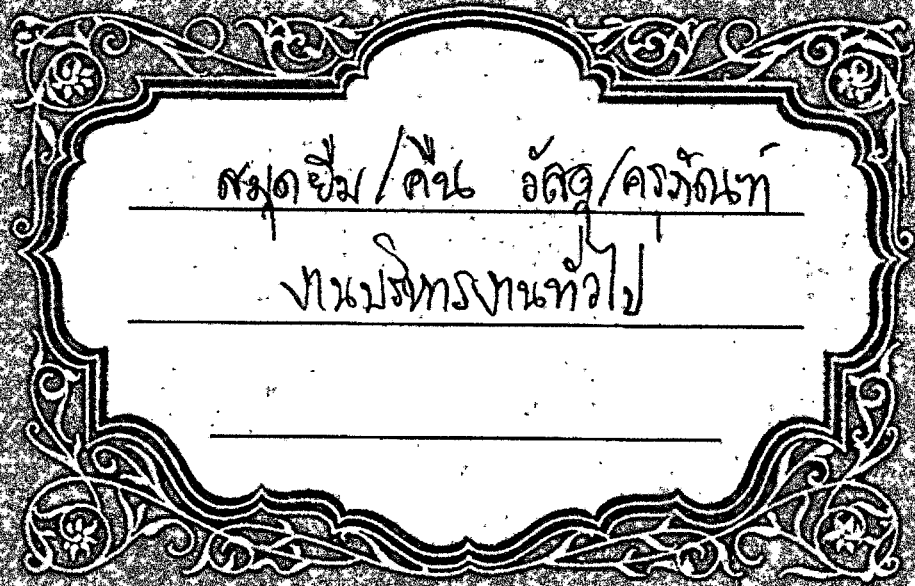 สมุดยืม/คืน วัสดุ/ครุภัณฑ์
งานบริหารงานทั่วไป